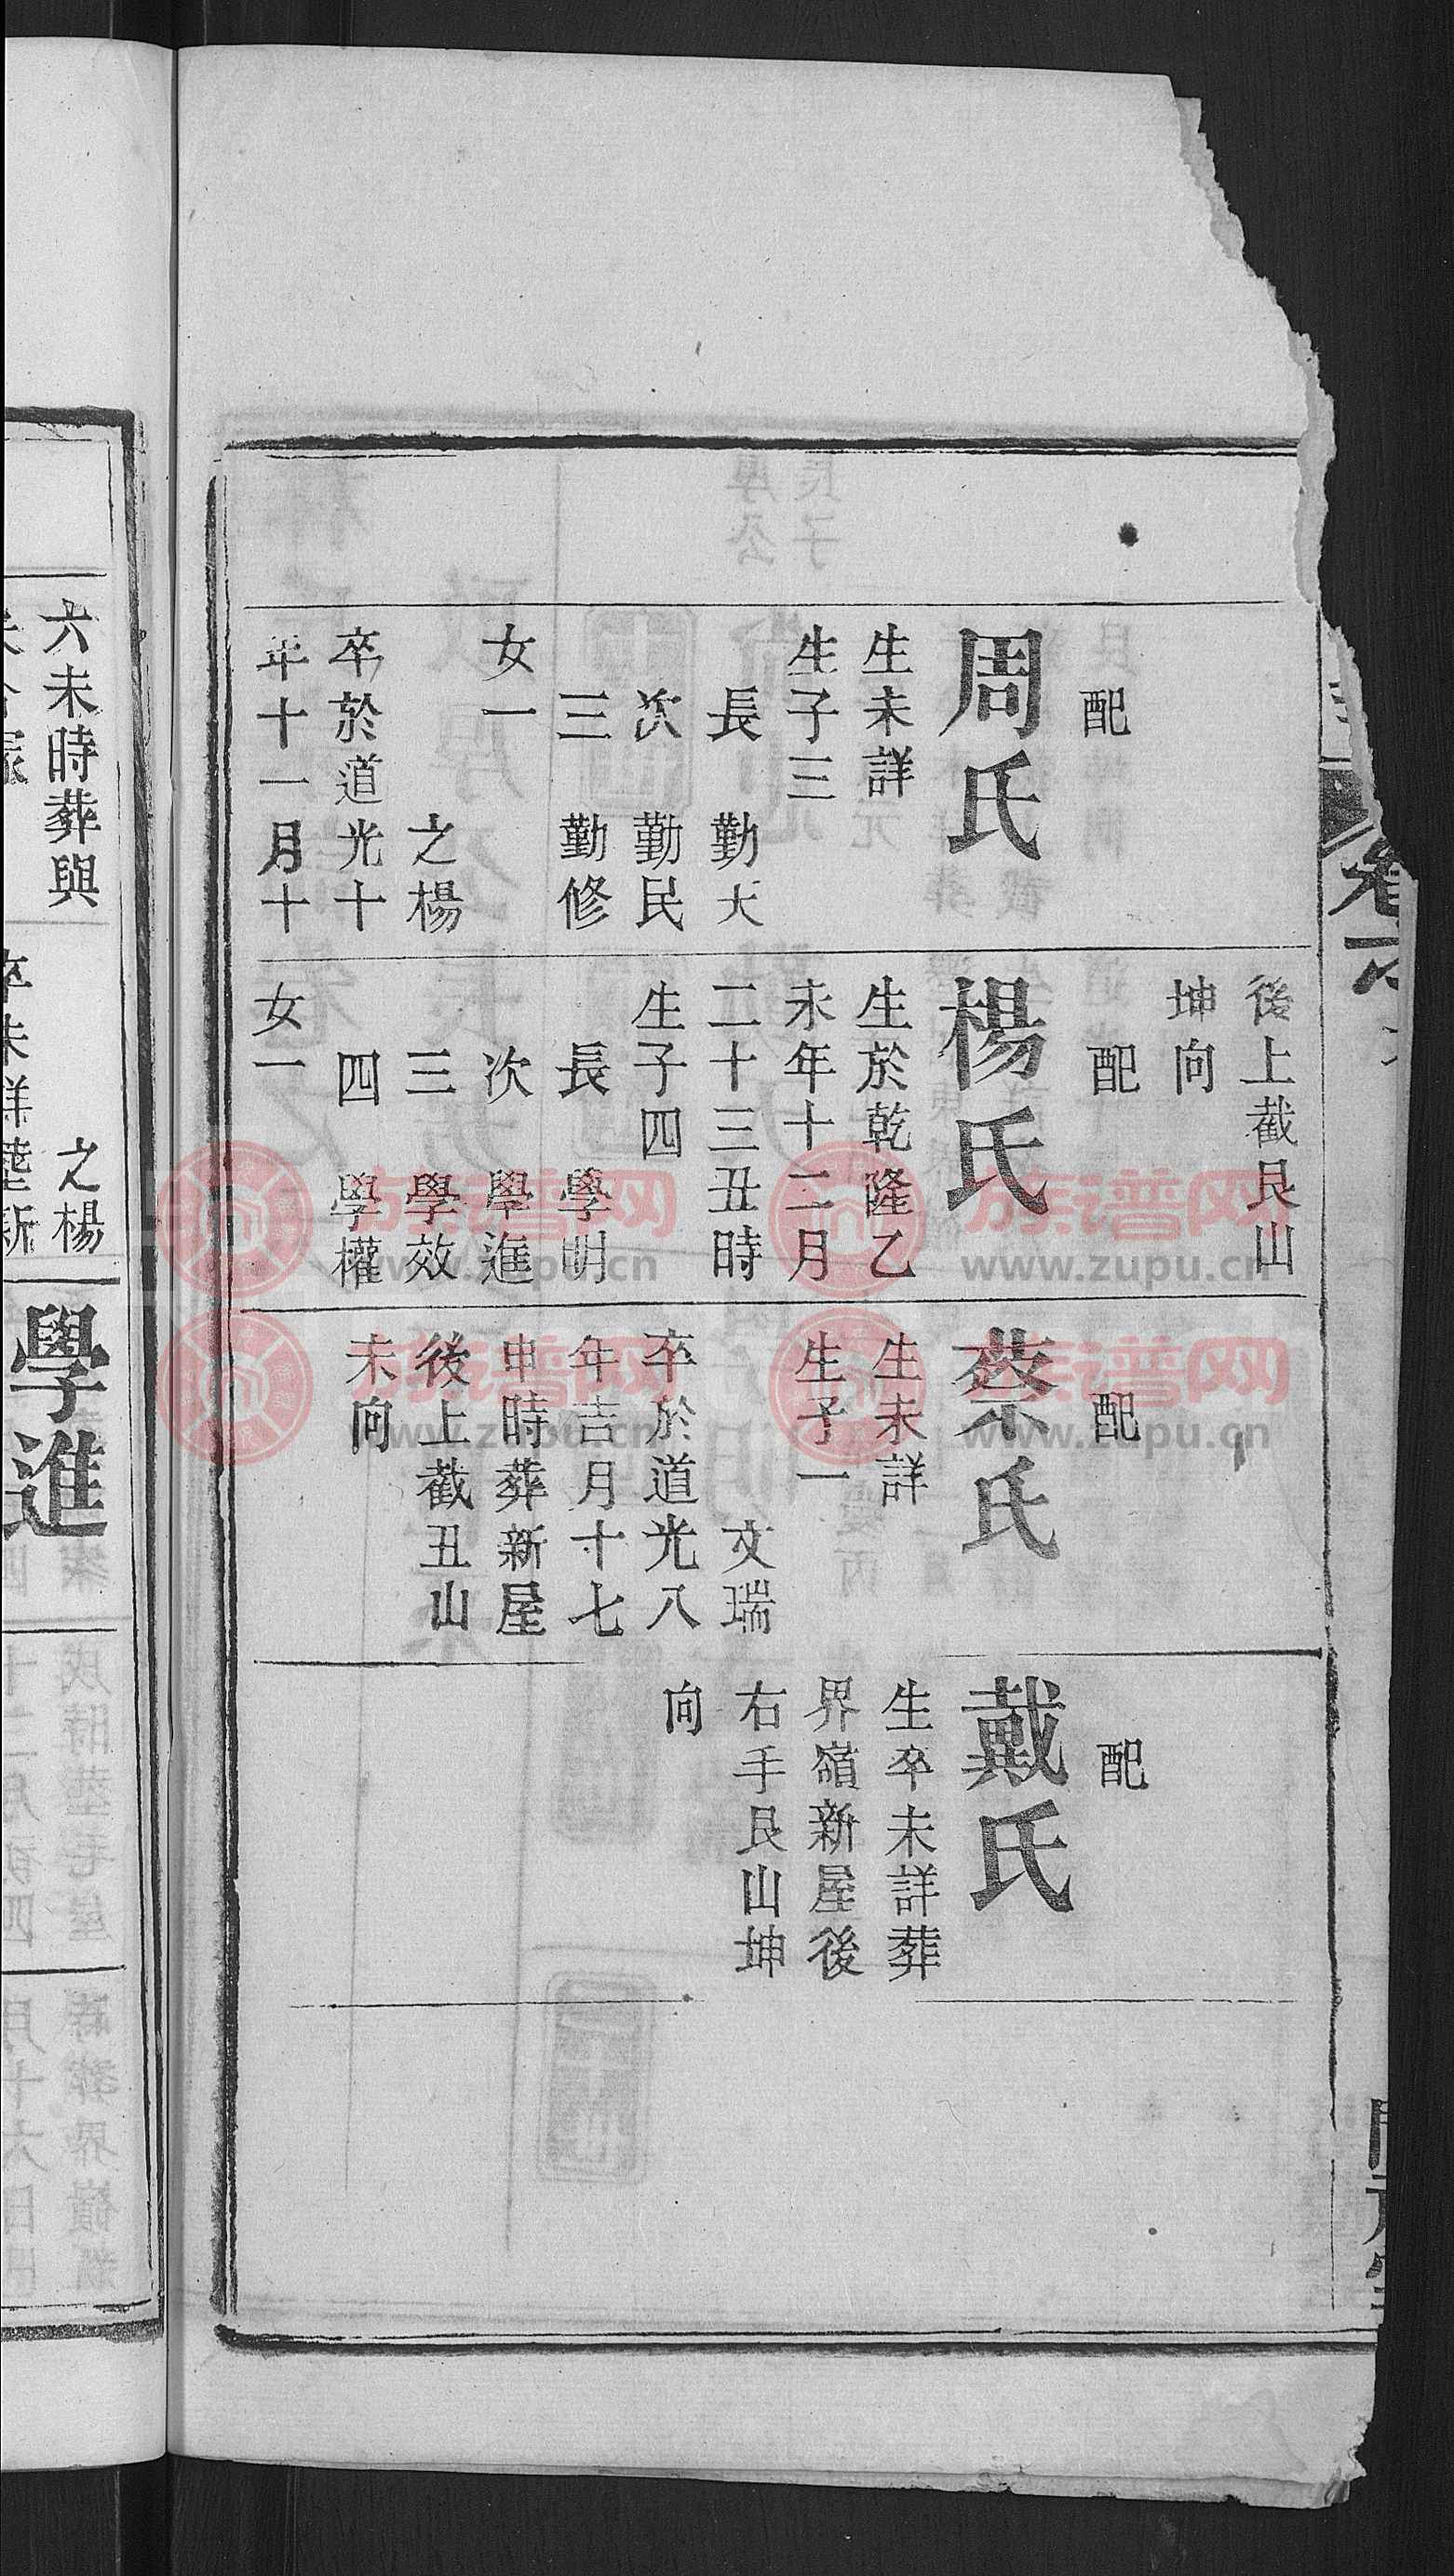 配
周氏
生未詳
生子三
長 勤大
次 勤民
三 勤修
女一
之楊
卒於道光十
年十一月十
後上截艮山
坤向
配
楊氏
生於乾隆乙
未年十二月
二十三丑時
生子四
長 學明
次 學進
三 學效
四 學權
女一
配
蔡氏
生未詳
生子一
文瑞
卒於道光八
年吉月十七
申時葬新屋
後上截丑山
未向
配
戴氏
生卒未詳葬
界嶺新屋後
右手艮山坤
向
六未時葬與
之楊
卒未詳
學進
族谱网
www.zupu.cn
族谱网
www.zupu.cn
族谱网
www.zupu.cn
族谱网
www.zupu.cn